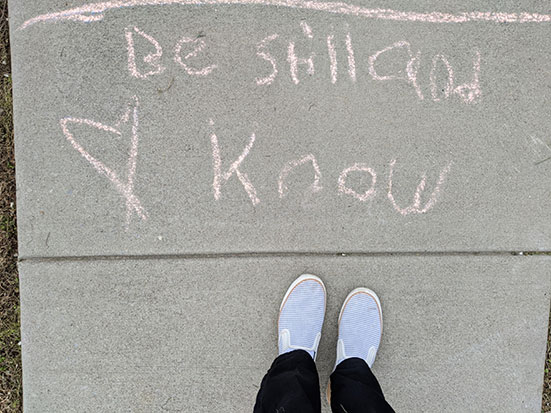 Be still and
Know